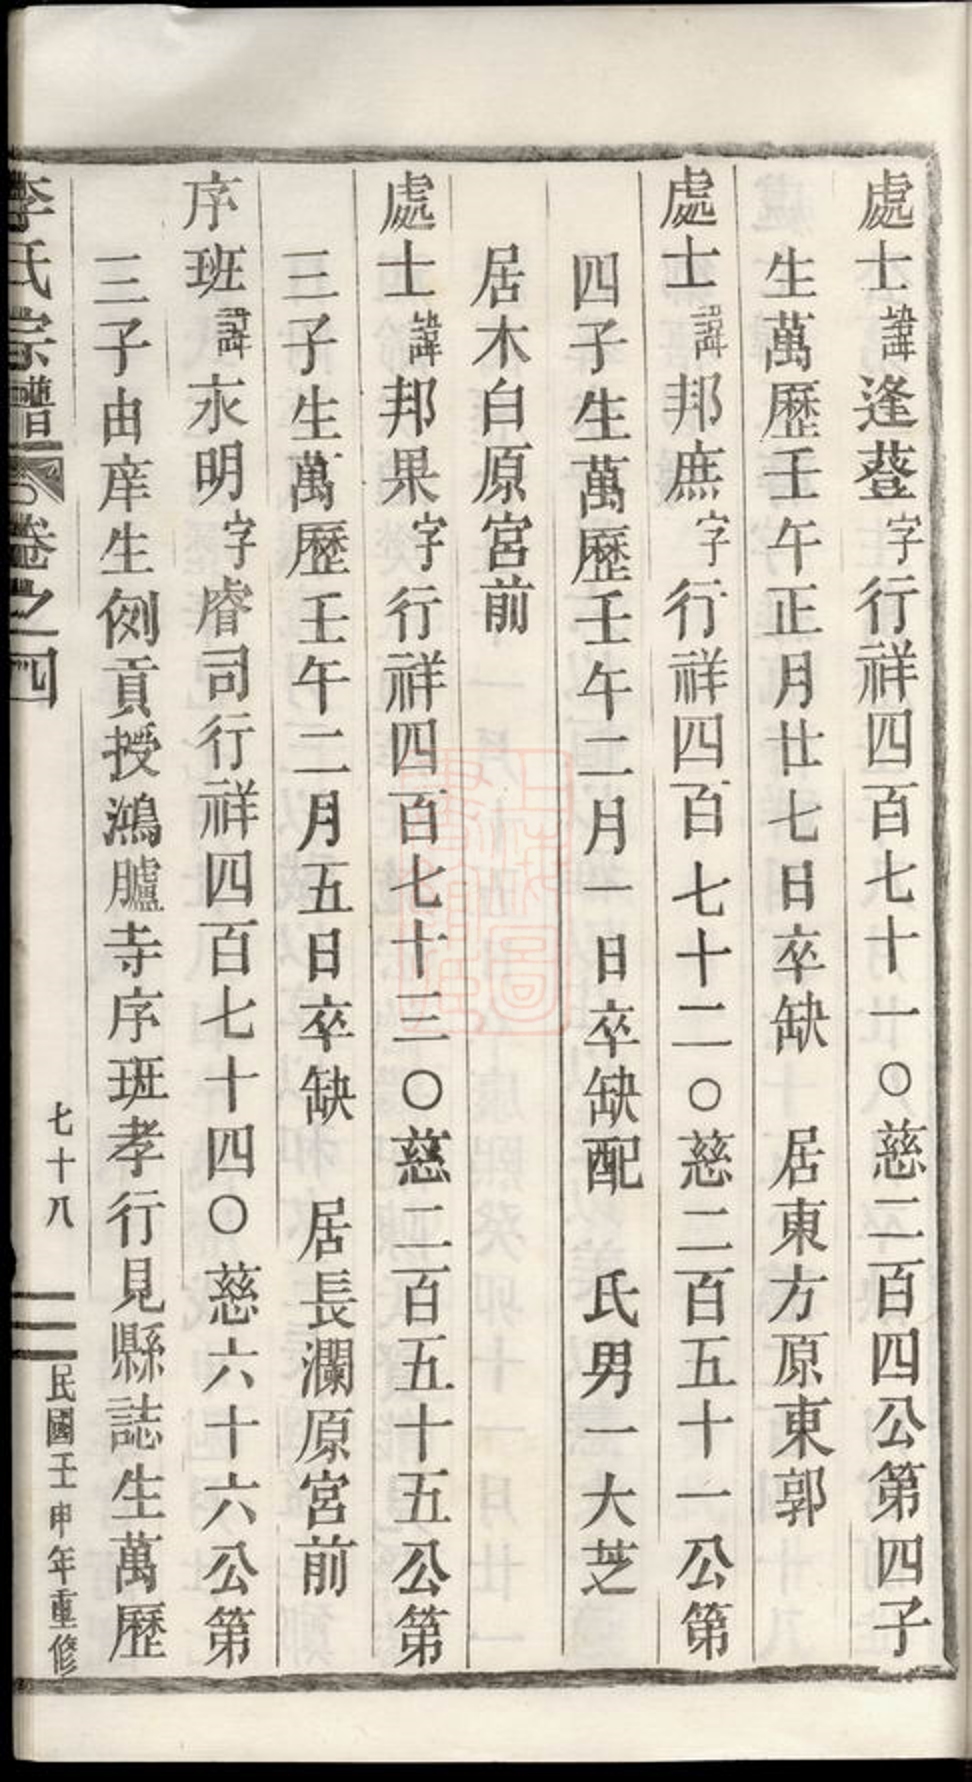 處士諱逢登字行祥四百七十一○慈二百四公第四子
生萬歷壬午正月廿七日卒缺　居東方原東郭
處士諱邦庶字行祥四百七十二○慈二百五十一公第
四子生萬歷壬午二月一日卒缺配　氏男一大芝
居木白原宮前
處士諱邦果字行祥四百七十三○慈二百五十五公第
三子生萬歷壬午二月五日卒缺　居長瀾原宮前
序班諱永明字睿司行祥四百七十四○慈六十六公第
三子由庠生例貢授鴻臚寺序班孝行見縣誌生萬歷
李氏宗譜 卷之四 七十八 民國壬申年重修